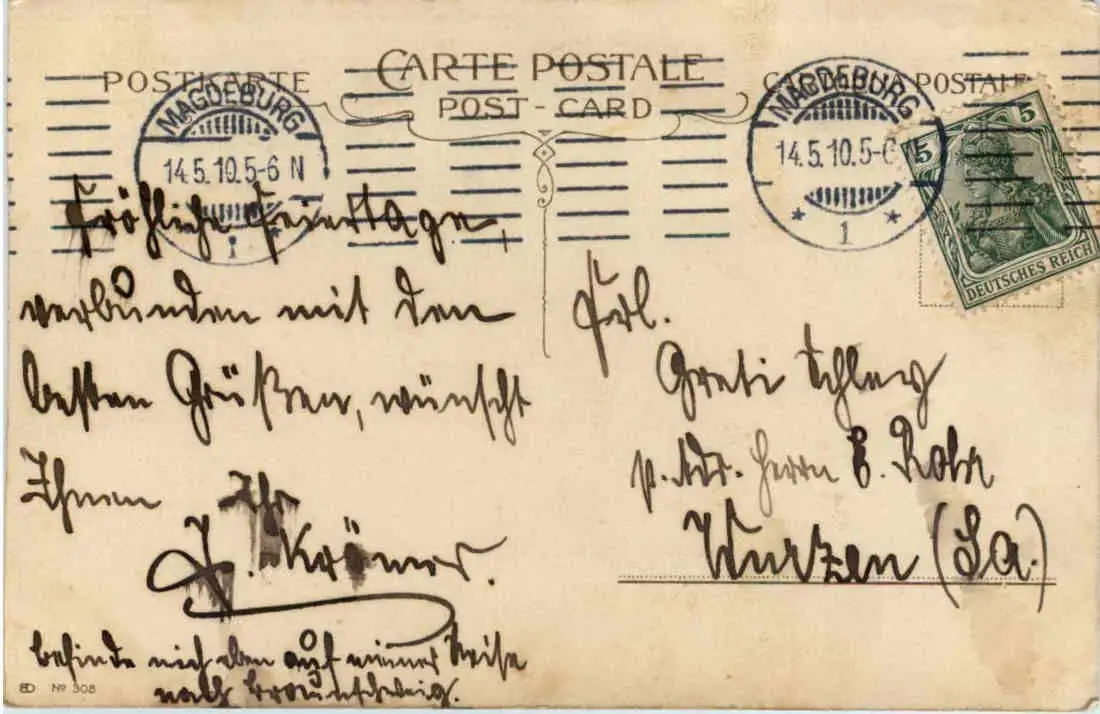 POSTKARTE
CARTE POSTALE
POST-CARD
POSTALE
MAGDEBURG
14.5.10.5-6 N
1
MAGDEBURG
14.5.10.5-6
1
5
5
DEUTSCHES REICH
Fröhliche Feiertage,
verbunden mit den
besten Grüßen, wünscht
Ihnen Ihr
Krömer.
befinde mich eben auf einer Reise
nach Braunschweig.
Frl.
Greti Schley
p. Adr. Herrn E.
Wurzen (Sa.)
Nº 308